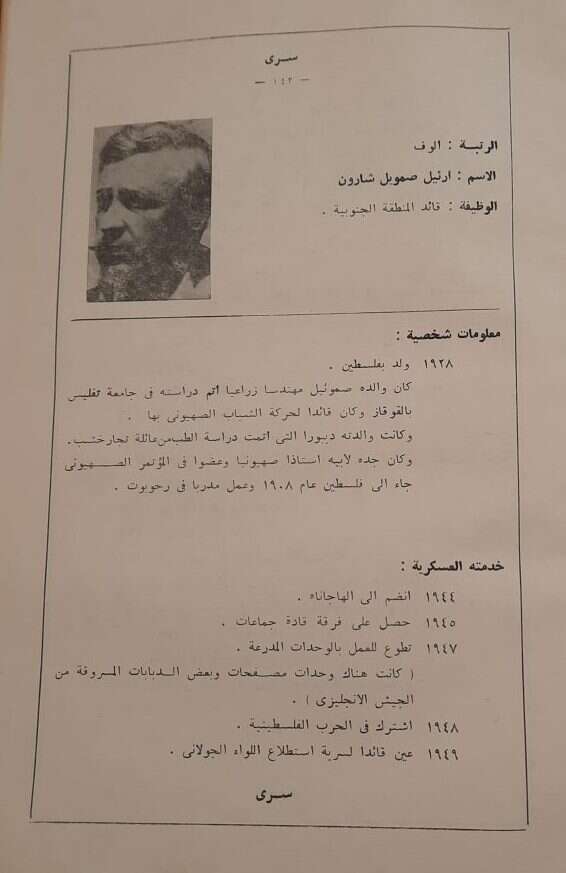 سـرى
— ١٤٢ —
الرتبـة : الوف
الاسم : ارئيل صمويل شارون
الوظيفة : قائد المنطقة الجنوبية .
معلومات شخصية :
١٩٢٨ ولد بفلسطين .
كان والده صموئيل مهندسا زراعيا أتم دراسته فى جامعة تفليس
بالقوقاز وكان قائدا لحركة الشباب الصهيونى بها .
وكانت والدته ديبورا التى اتمت دراسة الطب من عائلة تجار خشب .
وكان جده لأبيه استاذا صهيونيا وعضوا فى المؤتمر الصهيونى
جاء الى فلسطين عام ١٩٠٨ وعمل مدربا فى رحوبوت .
خدمته العسكرية :
١٩٤٤ انضم الى الهاجاناه .
١٩٤٥ حصل على فرقة قادة جماعات .
١٩٤٧ تطوع للعمل بالوحدات المدرعة .
( كانت هناك وحدات مصفحات وبعض الدبابات المسروقة من
الجيش الانجليزى ) .
١٩٤٨ اشترك فى الحرب الفلسطينية .
١٩٤٩ عين قائدا لسرية استطلاع اللواء الجولانى .
سـرى